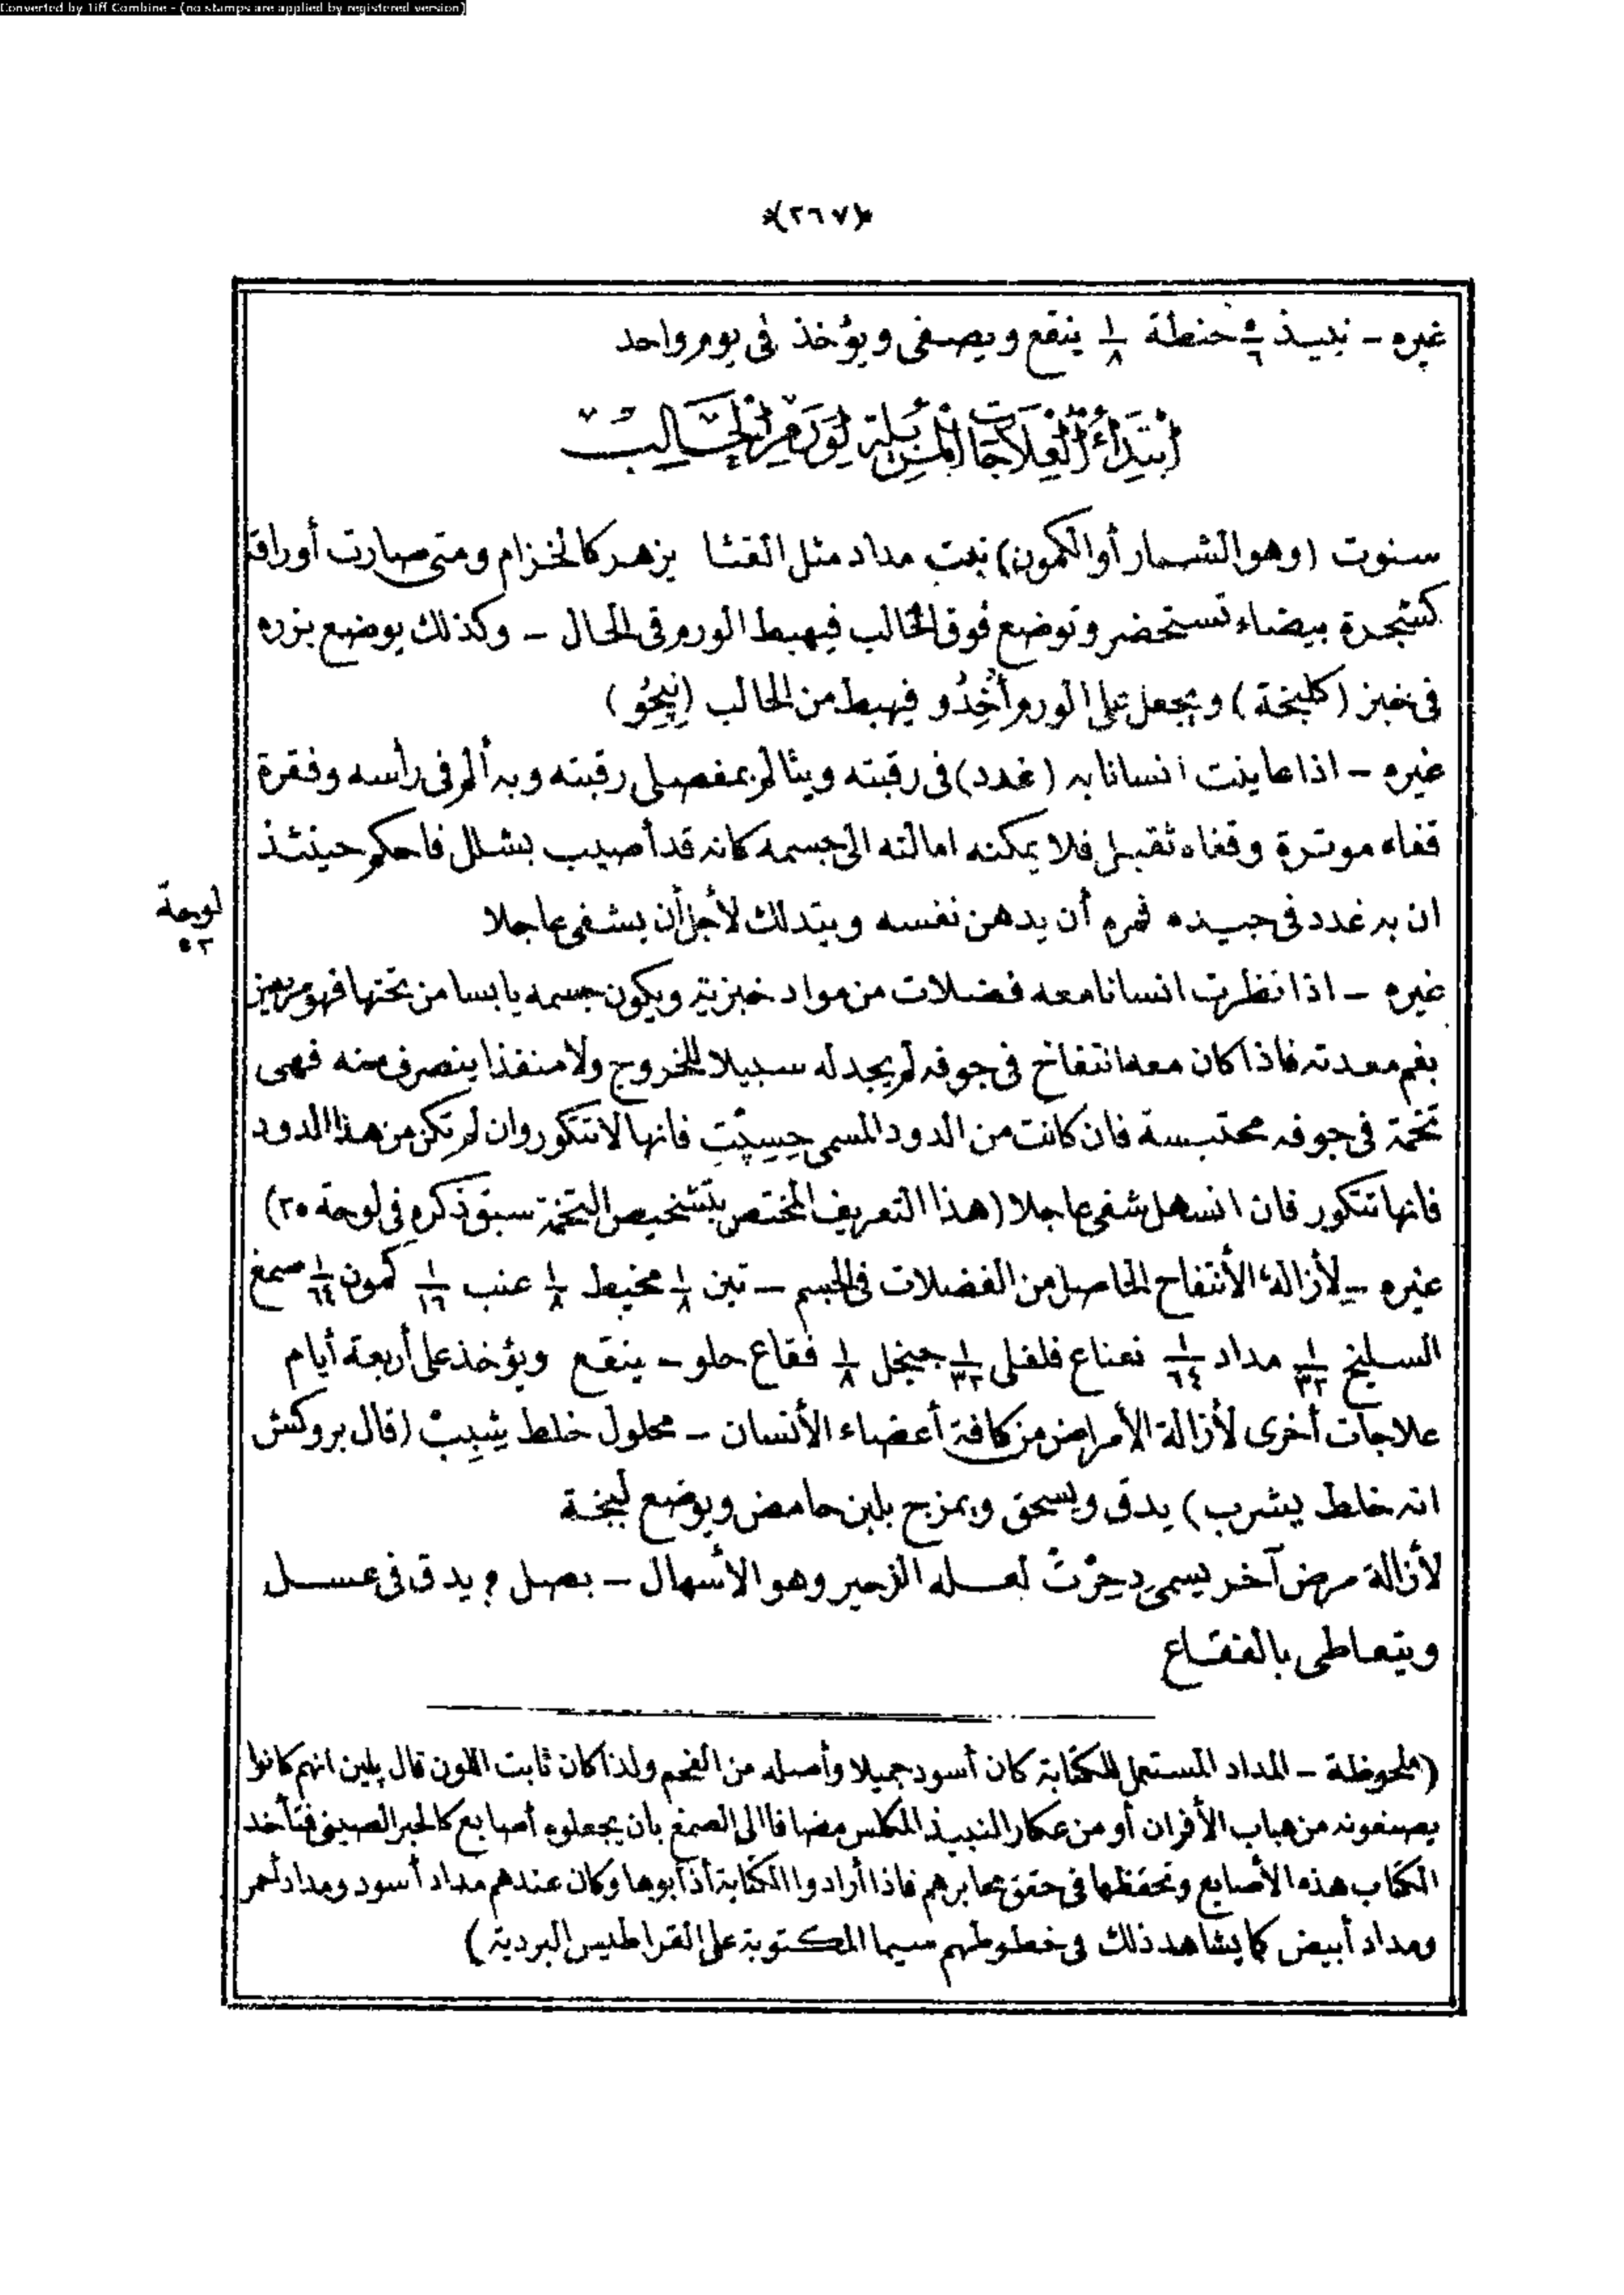 Converted by Tiff Combine - (no stamps are applied by registered version)
﴿٢٦٧﴾
غيره - نبيذ ٥/٦ حنطة ١/٨ ينقع ويصفى ويؤخذ فى يوم واحد
ابتداء العلاجات المزيلة لورم الحالب
سنوت (وهو الشمار أو الكمون) نبت مداد مثل القثا يزهر كالخزام ومتى صارت أوراقه
كشجرة بيضاء تستحضر وتوضع فوق الحالب فيهبط الورم فى الحال - وكذلك يوضع بزره
فى خبز (كلبخة) ويجعل على الورم أُخِدُو فيهبط من الحالب
غيره - اذا عاينت انسانا به (غدد) فى رقبته ويتألم بمفصلى رقبته وبه ألم فى رأسه وفقرة
قفاه موترة وقفاه ثقيل فلا يمكنه امالته الى جسمه كانه قد أصيب بشلل فاحكم حينئذ
ان به غدد فى جيده فمره أن يدهن نفسه ويتدلك لأجل أن يشفى عاجلا
لوحة
٥٢
غيره - اذا نظرت انسانا معه فضلات من مواد خبزية ويكون جسمه يابسا من تحتها فهو مريض
بفم معدته فاذا كان معه انتفاخ فى جوفه لم يجد له سبيلا للخروج ولا منفذا ينصرف منه فهى
تخمة فى جوفه محتبسة فان كانت من الدود المسمى فانها لا تتكور وان لم تكن من هذا الدود
فانها تتكور فان انسهل شفى عاجلا (هذا التعريف المختص بتشخيص التخمة سبق ذكره فى لوحة ٢٥)
غيره - لأزالة الأنتفاح الحاصل من الفضلات فى الجسم - تين ١/٨ مخيط ١/٨ عنب ١/١٦ كمون ١/٦٤ صمغ
السليخ ١/٣٢ مداد ١/٦٤ نعناع فلفلى ١/٣٢ جينجل ١/٨ فقاع حلو - ينقع ويؤخذ على أربعة أيام
علاجات أخرى لأزالة الأمراض من كافة أعضاء الأنسان - محلول خلط (قال بروكش
انه خلط يشرب) يدق ويسحق ويمزج بلبن حامض ويوضع لبخة
لأزالة مرض آخر يسمى لعله الزحير وهو الأسهال - بصل يدق فى عسل
ويتعاطى بالفقاع
(ملحوظة - المداد المستعمل للكتابة كان أسود جميلا وأصله من الفحم ولذا كان ثابت اللون قال پلين انهم كانوا
يصنعونه من هباب الأفران أو من عكار النبيذ المكلس مضافا الى الصمغ بان يجعلوه أصابع كالحبر الصينى فتأخد
الكتاب هذه الأصابع وتحفظها فى حقق محابرهم فاذا أرادوا الكتابة أذابوها وكان عندهم مداد أسود ومداد أحمر
ومداد أبيض كما يشاهد ذلك فى خطوطهم سيما المكتوبة على القراطيس البردية)